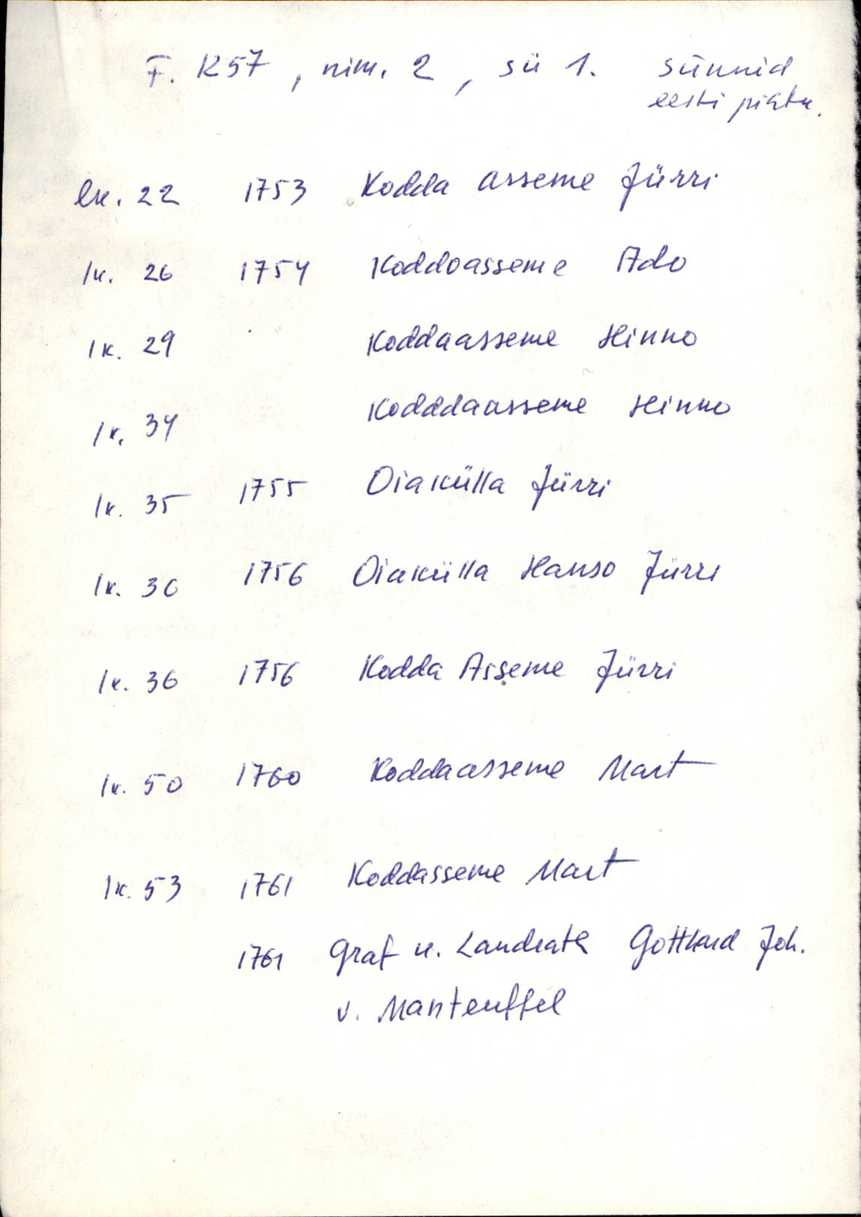 F. K57, nim. 2, sü 1. sünnid
eesti
lk. 22 1753 Kodda asseme Jürri
lk. 26 1754 Koddoasseme Ado
lk. 29 Koddaasseme Hinno
lk. 34 Kodddaasseme Hinno
lk. 35 1755 Oiakülla Jürri
lk. 36 1756 Oiakülla Hanso Jürri
lk. 36 1756 Kodda Asseme Jürri
lk. 50 1760 Koddaasseme Mart
lk. 53 1761 Koddasseme Mart
1761 Graf u. Landrath Gotthard Joh.
v. Manteuffel